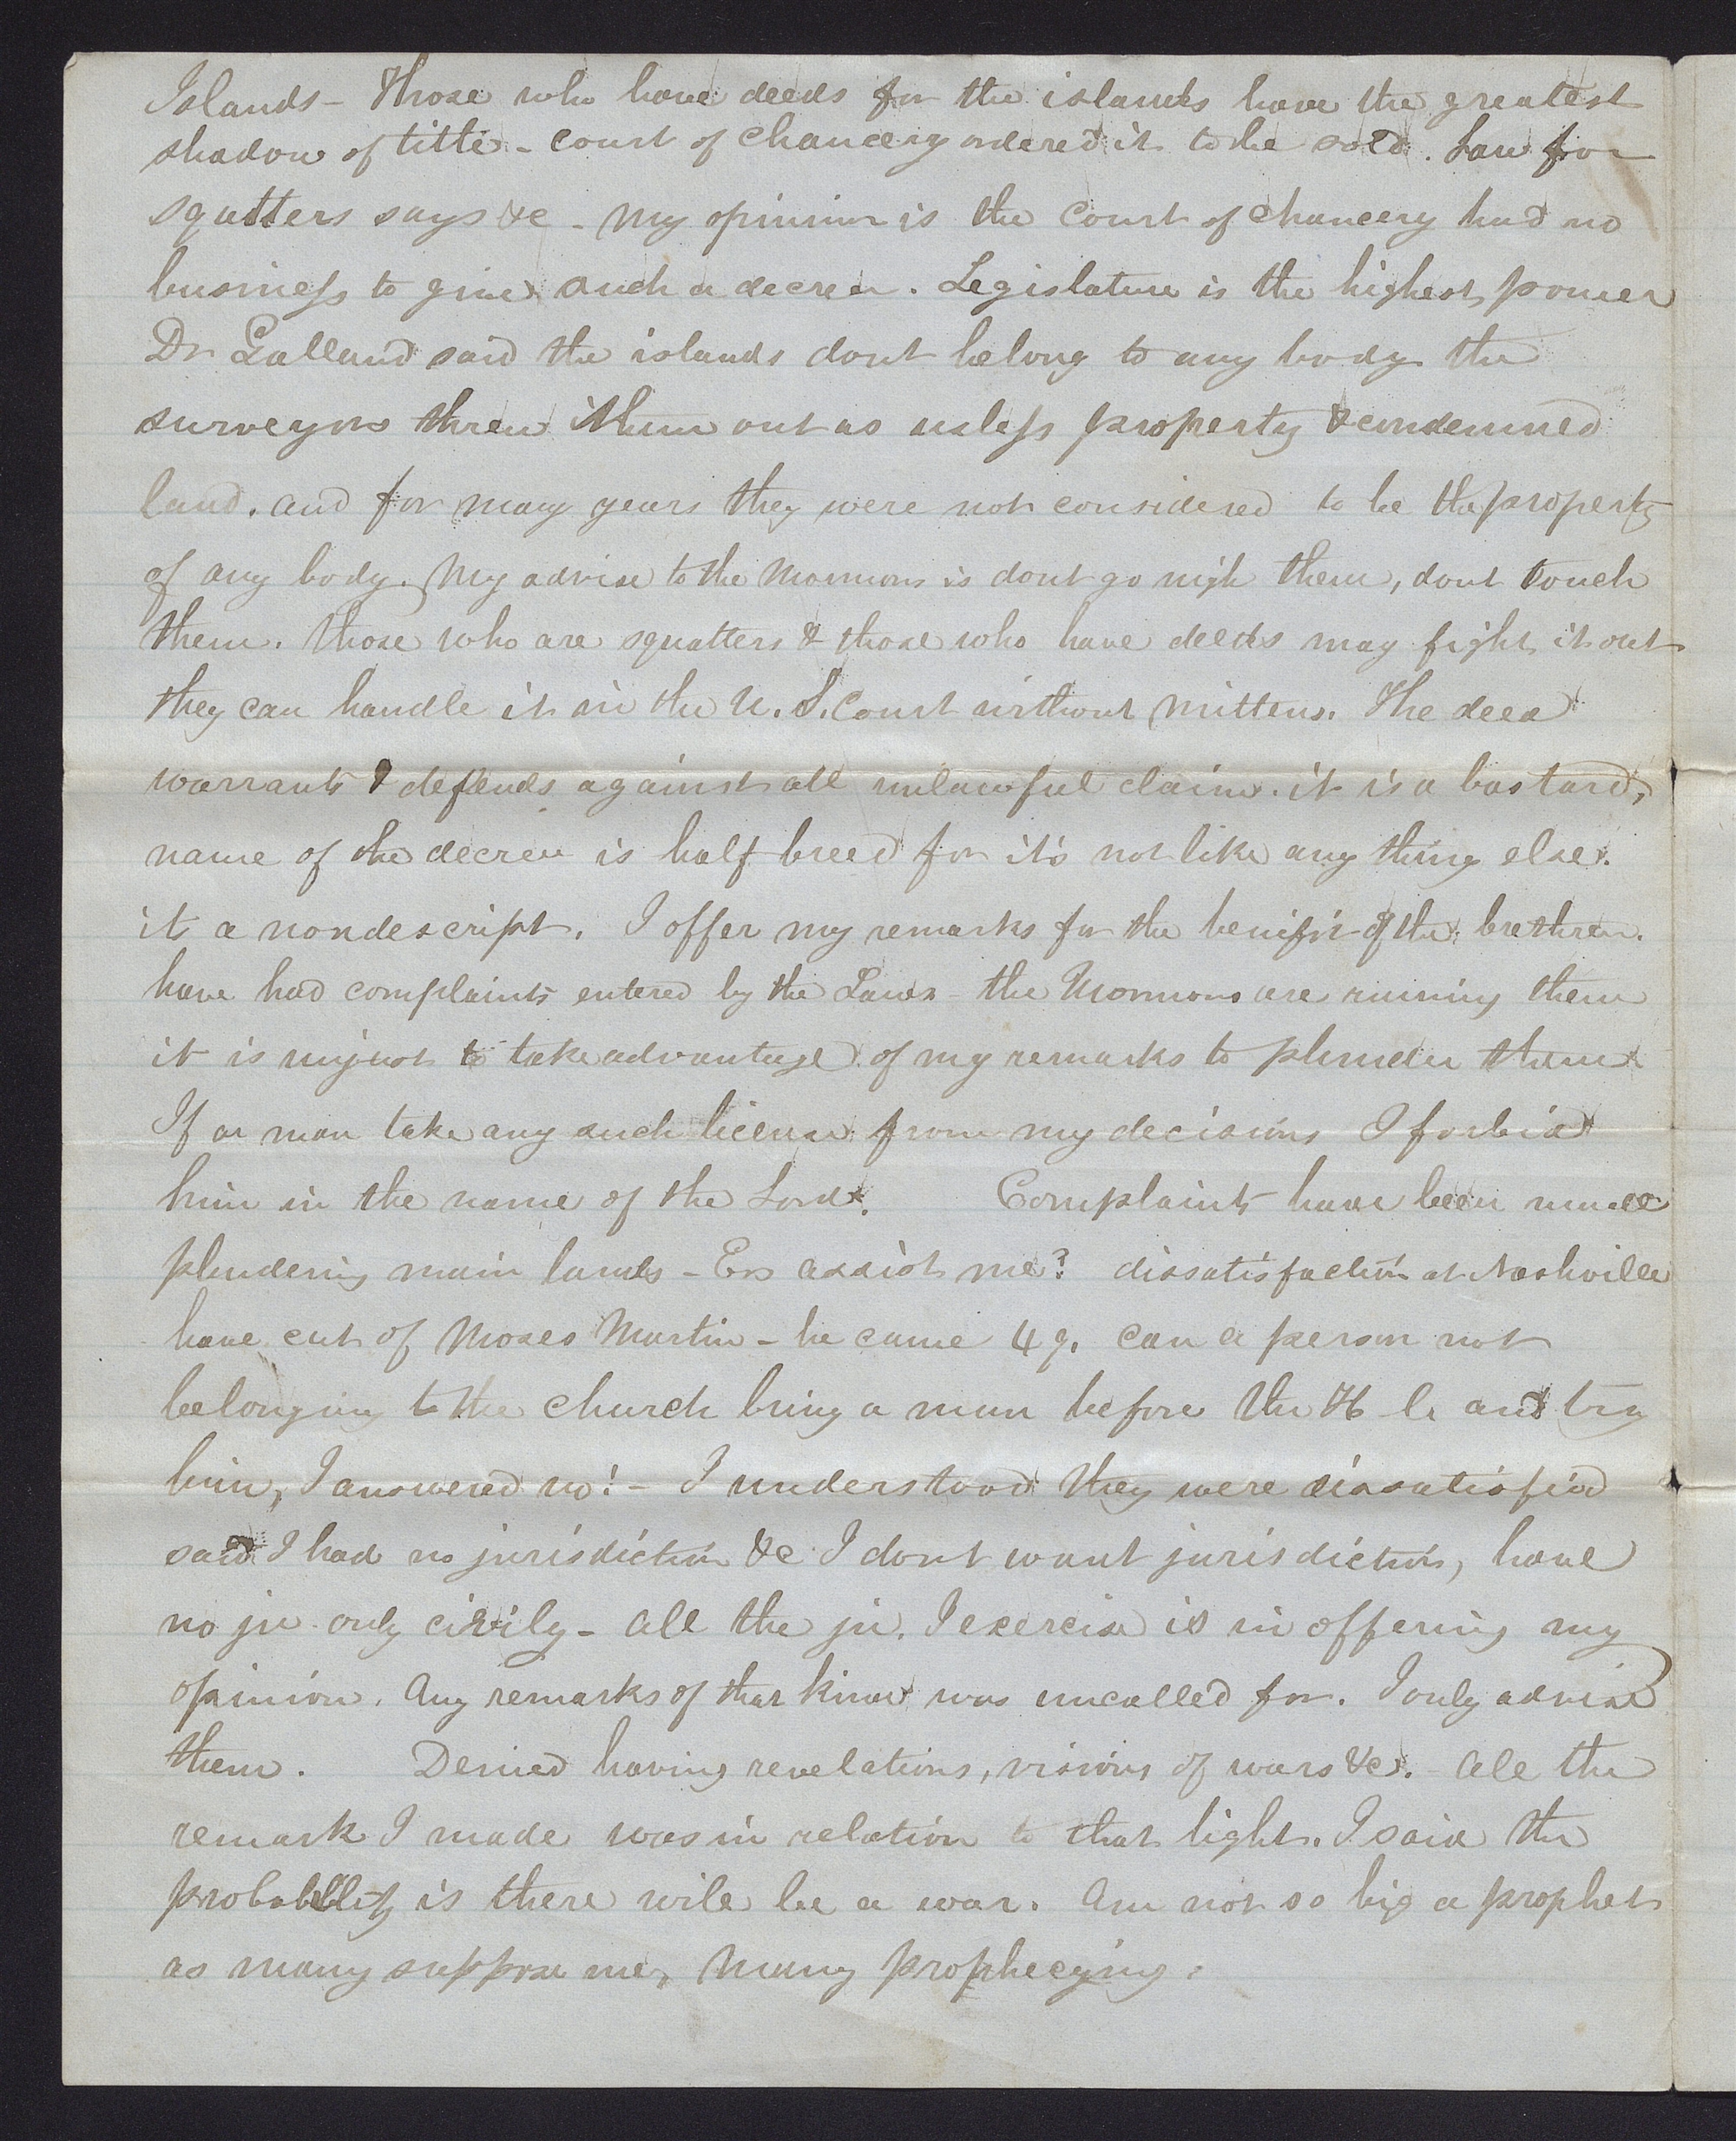 Islands - Those who have deeds for the islands have the greatest
shadow of title - court of chancery ordered it to be sold. Law for
squatters says &c - My opinion is the Court of Chancery had no
business to give such a decree. Legislature is the highest power
Dr Galland said the islands dont belong to any body the
surveyors threw them out as useless property & condemned
land. and for many years they were not considered to be the property
of any body. My advise to the Mormons is dont go nigh them, dont touch
them. Those who are squatters & those who have deeds may fight it out
they can handle it in the U. S. Court without mittens. The deed
warrants & defends against all unlawful claim. it is a bastard,
name of the decree is half breed for it's not like any thing else.
its a nondescript. I offer my remarks for the benifit of the brethren.
have had complaints entered by the Laws - the Mormons are ruining them
it is unjust to take advantage of my remarks to plunder them
If a man take any such license from my decisions I forbid
him in the name of the Lord. Complaints have been made
plundering main lands - Ex assist me? dissatisfaction at Nashville
have cut of Moses Martin - he came 4 q. can a person not
belonging to the church bring a man before the H c. and try
him, I answered no! - I understood they were dissatisfied
said I had no jurisdiction &c I dont want jurisdiction, have
no ju only civily - all the ju. I exercise is in offering my
opinion. Any remarks of that kind was uncalled for. I only advise
them. Denied having revelations, visions of wars &c. - all the
remark I made was in relation to that light. I said the
probability is there will be a war. Am not so big a prophet
as many suppose me, Many prophecying.